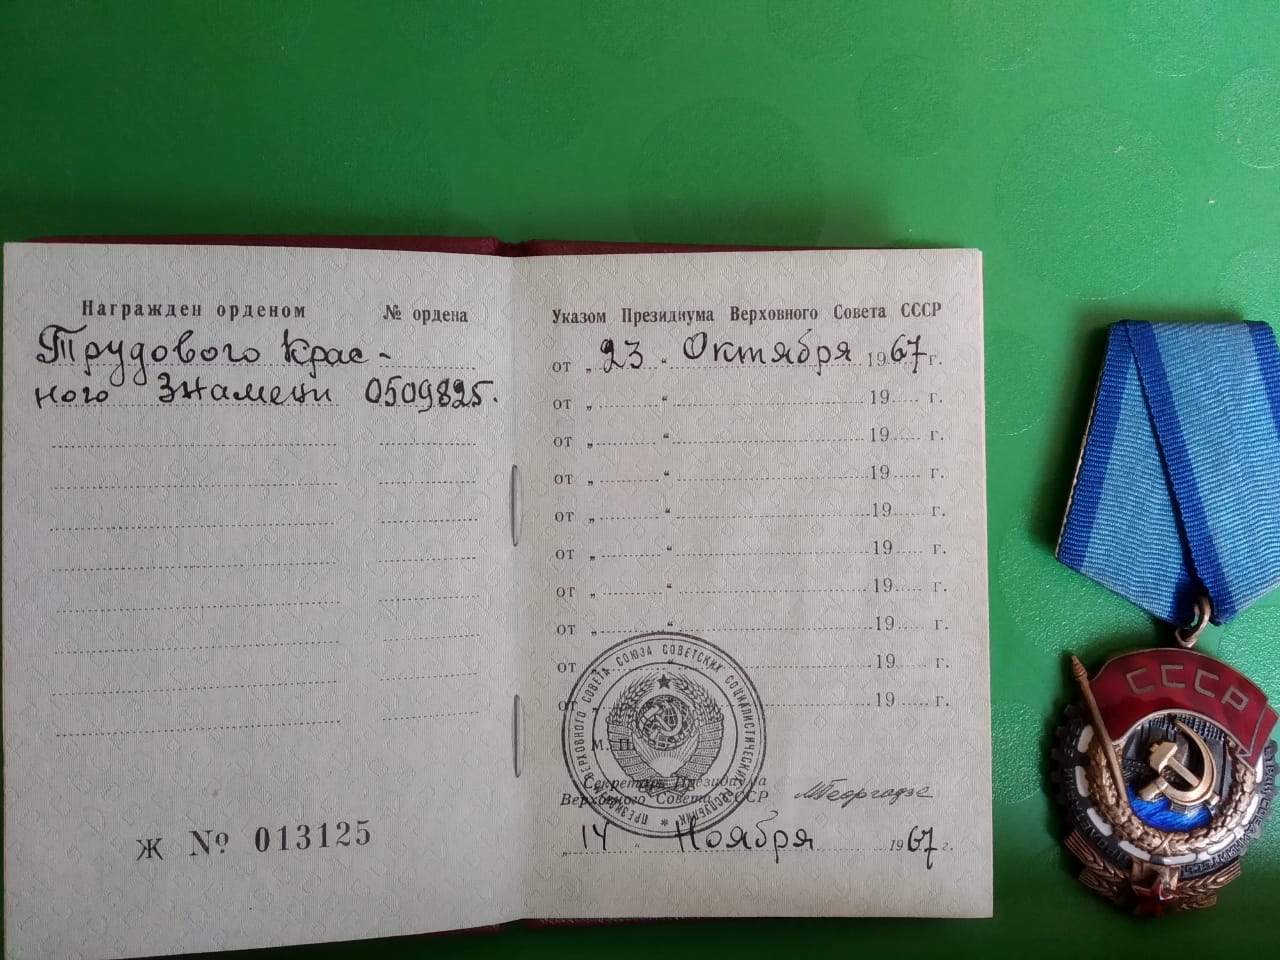 Награжден орденом № ордена
Трудового Крас-
ного Знамени 0509825.
Ж № 013125
Указом Президиума Верховного Совета СССР
от „ 23 “ Октября 1967 г.
от „ “ 19 г.
от „ “ 19 г.
от „ “ 19 г.
от „ “ 19 г.
от „ “ 19 г.
от „ “ 19 г.
от „ “ 19 г.
от „ “ 19 г.
от „ “ 19 г.
ПРЕЗИДИУМ ВЕРХОВНОГО СОВЕТА СОЮЗА СОВЕТСКИХ СОЦИАЛИСТИЧЕСКИХ РЕСПУБЛИК
М. П.
Секретарь Президиума
Верховного Совета СССР МГеоргадзе
„ 14 “ Ноября 1967 г.
СССР